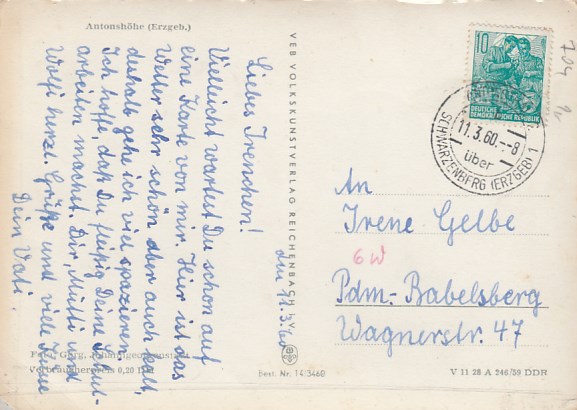 Antonshöhe (Erzgeb.)
den 11.3.60
Liebes Irenchen!
Vielleicht wartest Du schon auf
eine Karte von mir. Hier ist das
Wetter sehr schön aber auch kalt,
deshalb gehe ich viel spazieren.
Ich hoffe, daß Du fleißig Deine Schul-
arbeiten machst. Dir, Mutti und
Wolfi herzl. Grüße und viele Küsse
Dein Vati.
Foto: Garg, Johanngeorgenstadt
Verbraucherpreis 0,20 DM
VEB VOLKSKUNSTVERLAG REICHENBACH i. V.
Best. Nr. 14/3460
10
DEUTSCHE
DEMOKRATISCHE REPUBLIK
11.3.60.-8
über
SCHWARZENBERG (ERZGEB) 1
704
An
Irene Gelbe
6W
Pdm-Babelsberg
Wagnerstr. 47
V 11 28 A 246/59 DDR